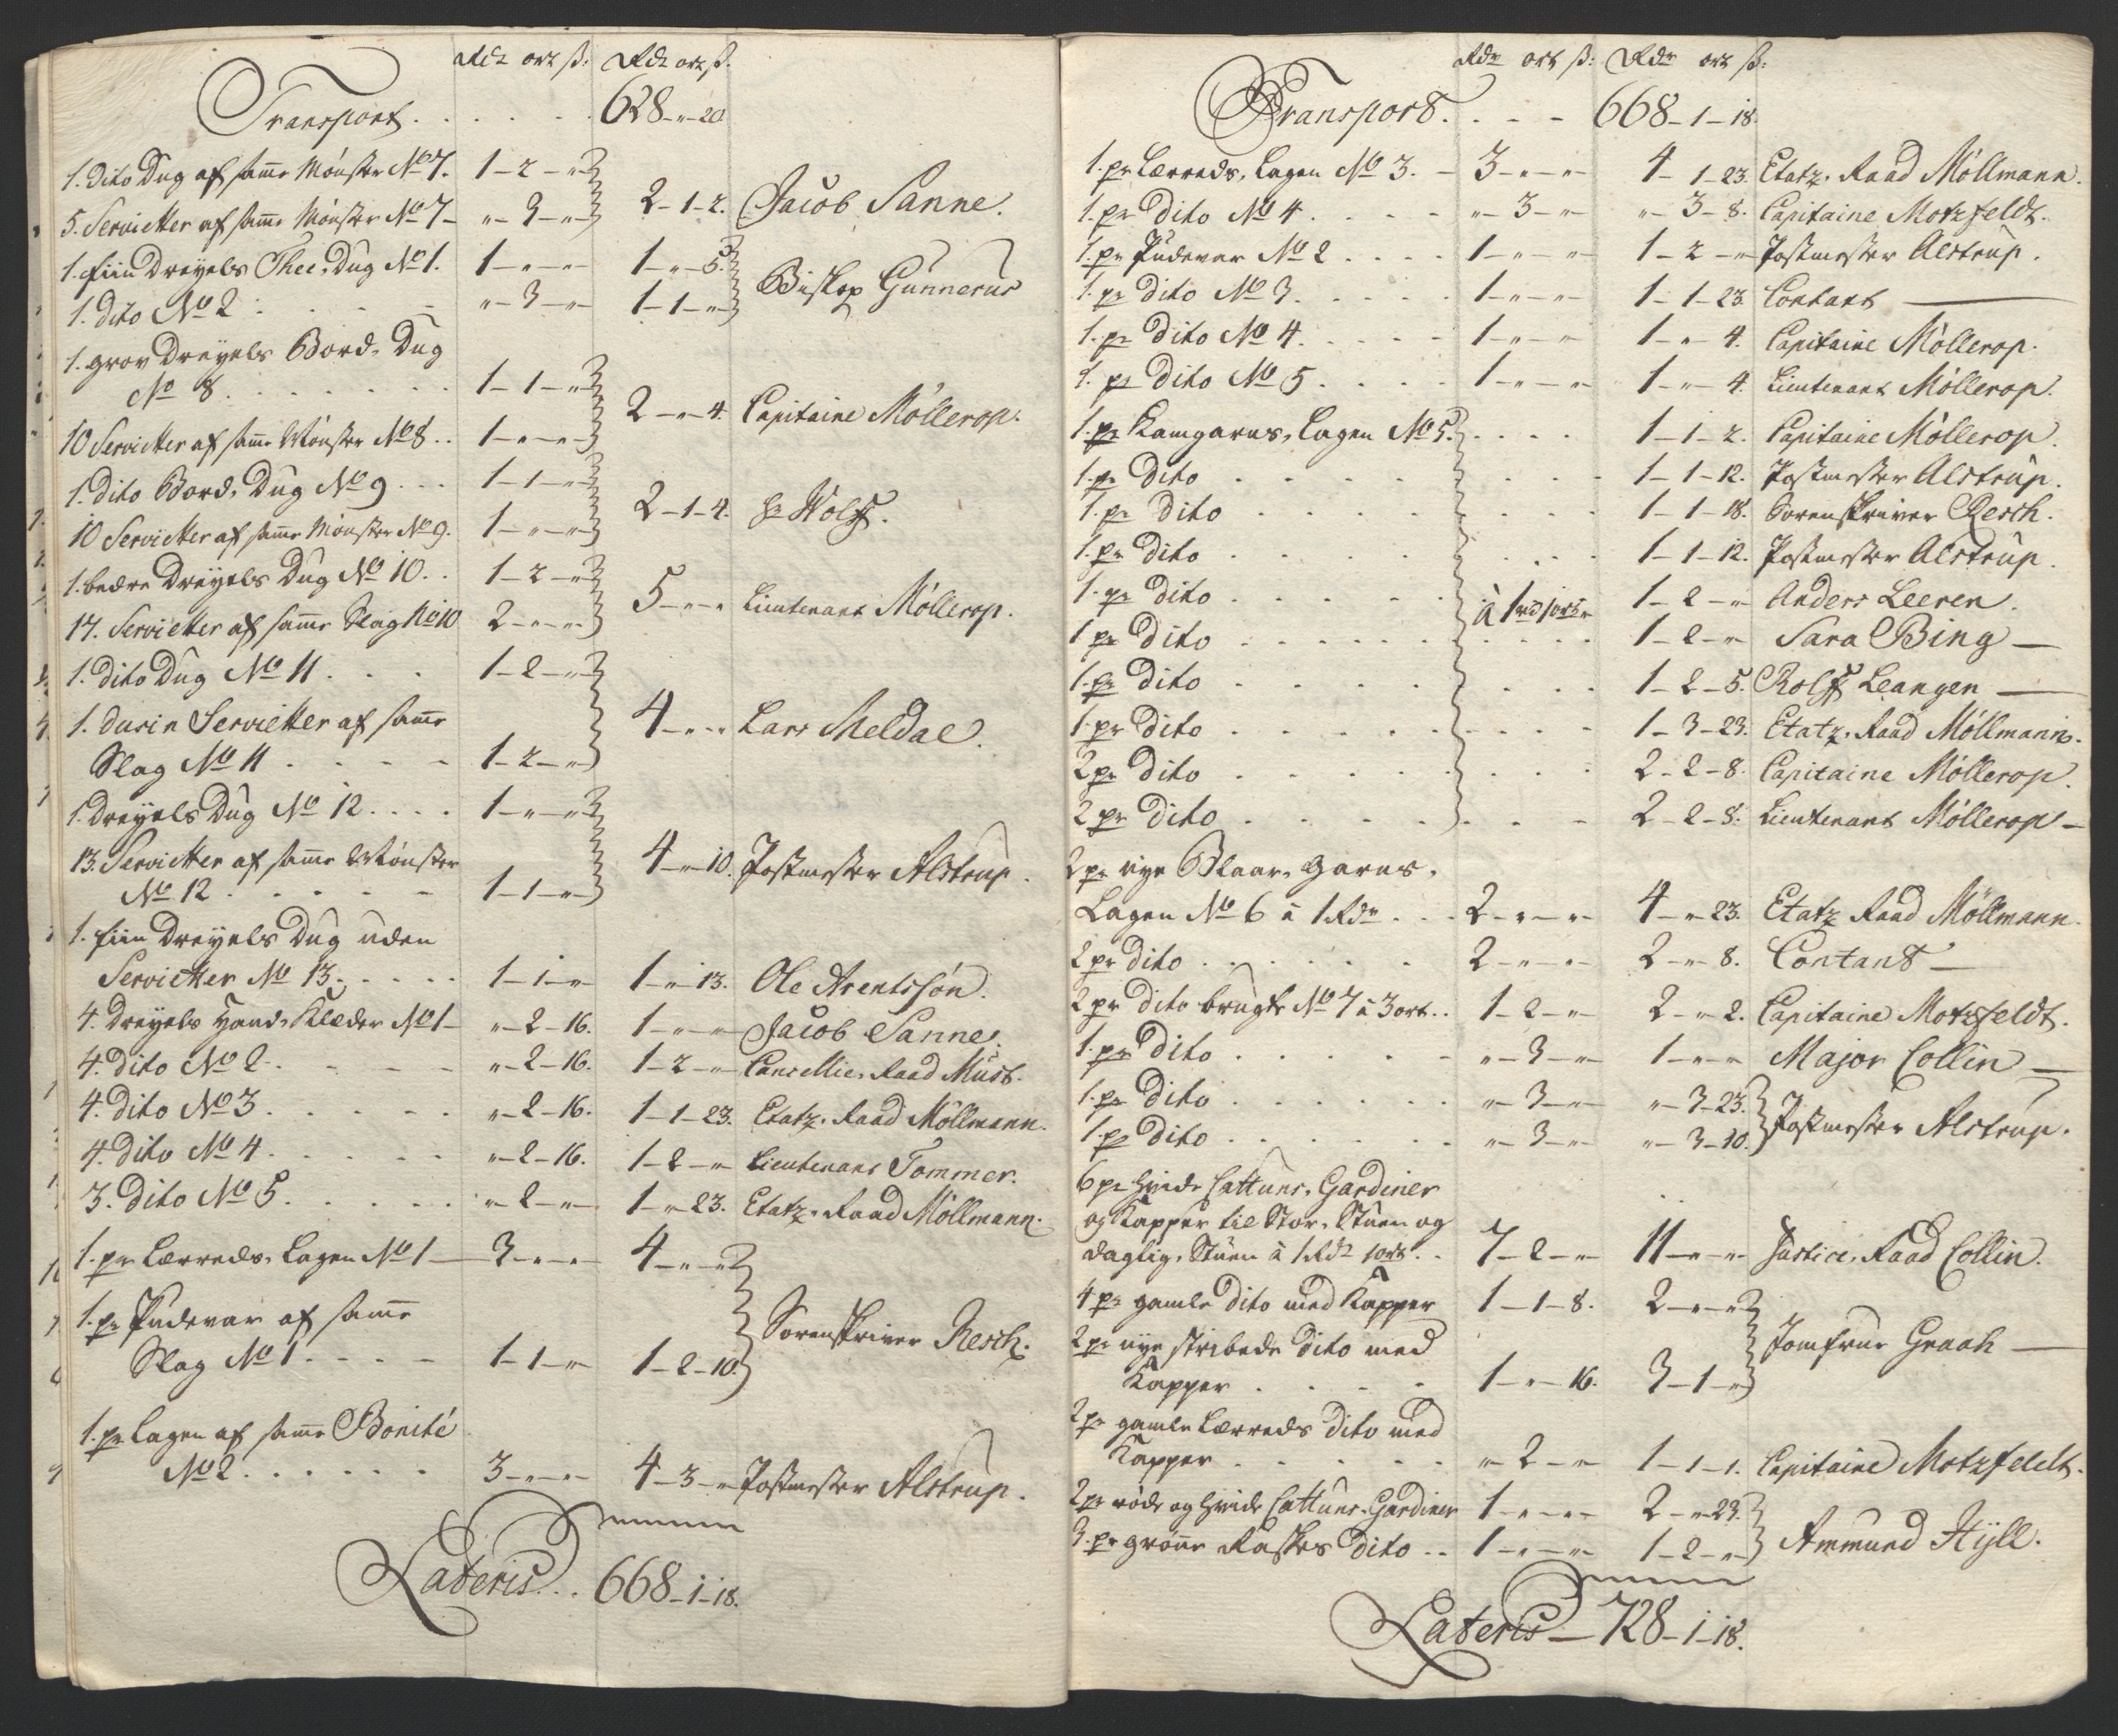 Rdr ort ß: Rdr ort ß.
Transport . . . . . . 628 - " - 20
1. dito Dug af samme Mønster No 7. 1 - 2 - "
5. Servietter af samme Mønster No 7 - " - 3 - " 2 - 1 - 2. Jacob Sanne.
1. fiin Dreyels Thee-Dug No 1. 1 - " - " 1 - " - 5.
1. dito No 2 . . . " - 3 - " 1 - 1 - " Biskop Gunnerus
1. grov Dreyels Bord-Dug
No 8 . . . . . . 1 - 1 - "
10 Servietter af samme Mønster No 8 . . 1 - " - " 2 - " - 4. Capitaine Møllerop.
1. dito Bord-Dug No 9 . . . 1 - 1 - "
10 Servietter af samme Mønster No 9. 1 - " - " 2 - 1 - 4. Hr Wolff.
1. bedre Dreyels Dug No 10. . 1 - 2 - "
17. Servietter af samme Slag No 10 2 - " - " 5 - " - " Lieutenant Møllerop.
1. dito Dug No 11 . . . 1 - 2 - "
1. dusin Servietter af samme
Slag No 11 . . . . . 1 - 2 - " 4 - " - " Lars Meldal.
1. Dreyels Dug No 12 . . . . 1 - " - "
13. Servietter af samme Mønster
No 12 . . . . . 1 - 1 - " 4 - " - 10. Postmester Alstrup.
1. fiin Dreyels Dug uden
Servietter No 13. . . . . 1 - 1 - " 1 - " - 13. Ole Arentssøn.
4. Dreyels Hand-Klæder No 1 - " - 2 - 16. 1 - " - " Jacob Sanne.
4. dito No 2. . . . . " - 2 - 16. 1 - 2 - " Cancellie-Raad Must.
4. dito No 3 . . . . . " - 2 - 16. 1 - 1 - 23. Etatz-Raad Møllmann.
4. dito No 4 . . . . . " - 2 - 16. 1 - 2 - " Lieutenant Tommer.
3. dito No 5 . . . . . " - 2 - " 1 - " - 23. Etatz-Raad Møllmann.
1. pr Lærreds-Lagen No 1 - 3 - " - " 4 - " - "
1. pr Pudevar af samme
Slag No 1 . . . . 1 - 1 - " 1 - 2 - 10. Sorenskriver Resch.
1. pr Lagen af samme Bonité
No 2 . . . . . . 3 - " - " 4 - 3 - " Postmester Alstrup.
Lateris . . 668 - 1 - 18.
Rdr ort ß: Rdr ort ß:
Transport. . - - 668 - 1 - 18
1. pr Lærreds-Lagen No 3. - 3 - " - " 4 - 1 - 23. Etatz-Raad Møllmann.
1. pr Dito No 4 . . . . " - 3 - " " - 3 - 8. Capitaine Motzfeldt.
1. pr Pudevar No 2 . . . . 1 - " - " 1 - 2 - " Postmester Alstrup.
1. pr Dito No 3. . . . . 1 - " - " 1 - 1 - 23. Contant
1. pr Dito No 4. . . . . 1 - " - " 1 - " - 4. Capitaine Møllerop.
1. pr Dito No 5 . . . . 1 - " - " 1 - " - 4. Lieutenant Møllerop.
1. pr Kamgarns-Lagen No 5. . . . . 1 - 1 - 2. Capitaine Møllerop.
1. pr Dito . . . . . 1 - 1 - 12. Postmester Alstrup.
1. pr Dito . . . . . 1 - 1 - 18. Sorenskriver Resch.
1. pr Dito . . . . . 1 - 1 - 12. Postmester Alstrup.
1. pr Dito . . . . . à 1 rd 1 ort 1 - 2 - " Anders Leeren.
1 pr Dito . . . . . 1 - 2 - " Sara Bing -
1. pr Dito . . . . . 1 - 2 - 5. Rolff Leangen -
1. pr Dito . . . . . 1 - 3 - 23. Etatz-Raad Møllmann.
2 pr Dito . . . . . 2 - 2 - 8. Capitaine Møllerop.
2 pr Dito . . . . . 2 - 2 - 8. Lieutenant Møllerop -
2 pr nye Blaar-Garns-
Lagen No 6 à 1 Rdr . . . 2 - " - " 4 - " - 23. Etatz Raad Møllmann.
2 pr dito . . . . . . 2 - " - " 2 - " - 8. Contant -
2 pr dito brugte No 7 à 3 ort . . 1 - 2 - " 2 - " - 2. Capitaine Motzfeldt.
1. pr Dito . . . . . " - 3 - " 1 - " - " Major Collin -
1. pr Dito . . . . . . " - 3 - " " - 3 - 23.
1. pr Dito . . . . . . " - 3 - " " - 3 - 10. Postmester Alstrup.
6 pr hvide Cattuns-Gardiner
og Kapper til Stor-Stuen og
daglig-Stuen à 1 Rdr 1 ort . . 7 - 2 - " 11 - " - " Justice-Raad Collin.
4 pr gamle dito med Kapper 1 - 1 - 8. 2 - " - "
2 pr nye stribede Dito med
Kapper . . . . . 1 - " - 16. 3 - 1 - " Jomfrue Graah -
2 pr gamle Lærreds Dito med
Kapper . . . . . " - 2 - " 1 - 1 - 1. Capitaine Motzfeldt.
2 pr røde og hvide Cattuns-Gardiner 1 - " - " 2 - " - 23.
3. pr grønne Raskes Dito . . 1 - " - " 1 - 2 - " Ammund Hyll.
Lateris - 728 - 1 - 18.